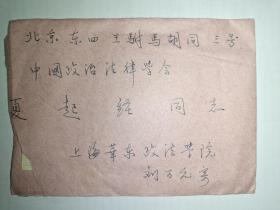 北京东四王驸马胡同三号
中国政治法律学会
夏 起经 同志
上海华东政法学院
刘百先寄